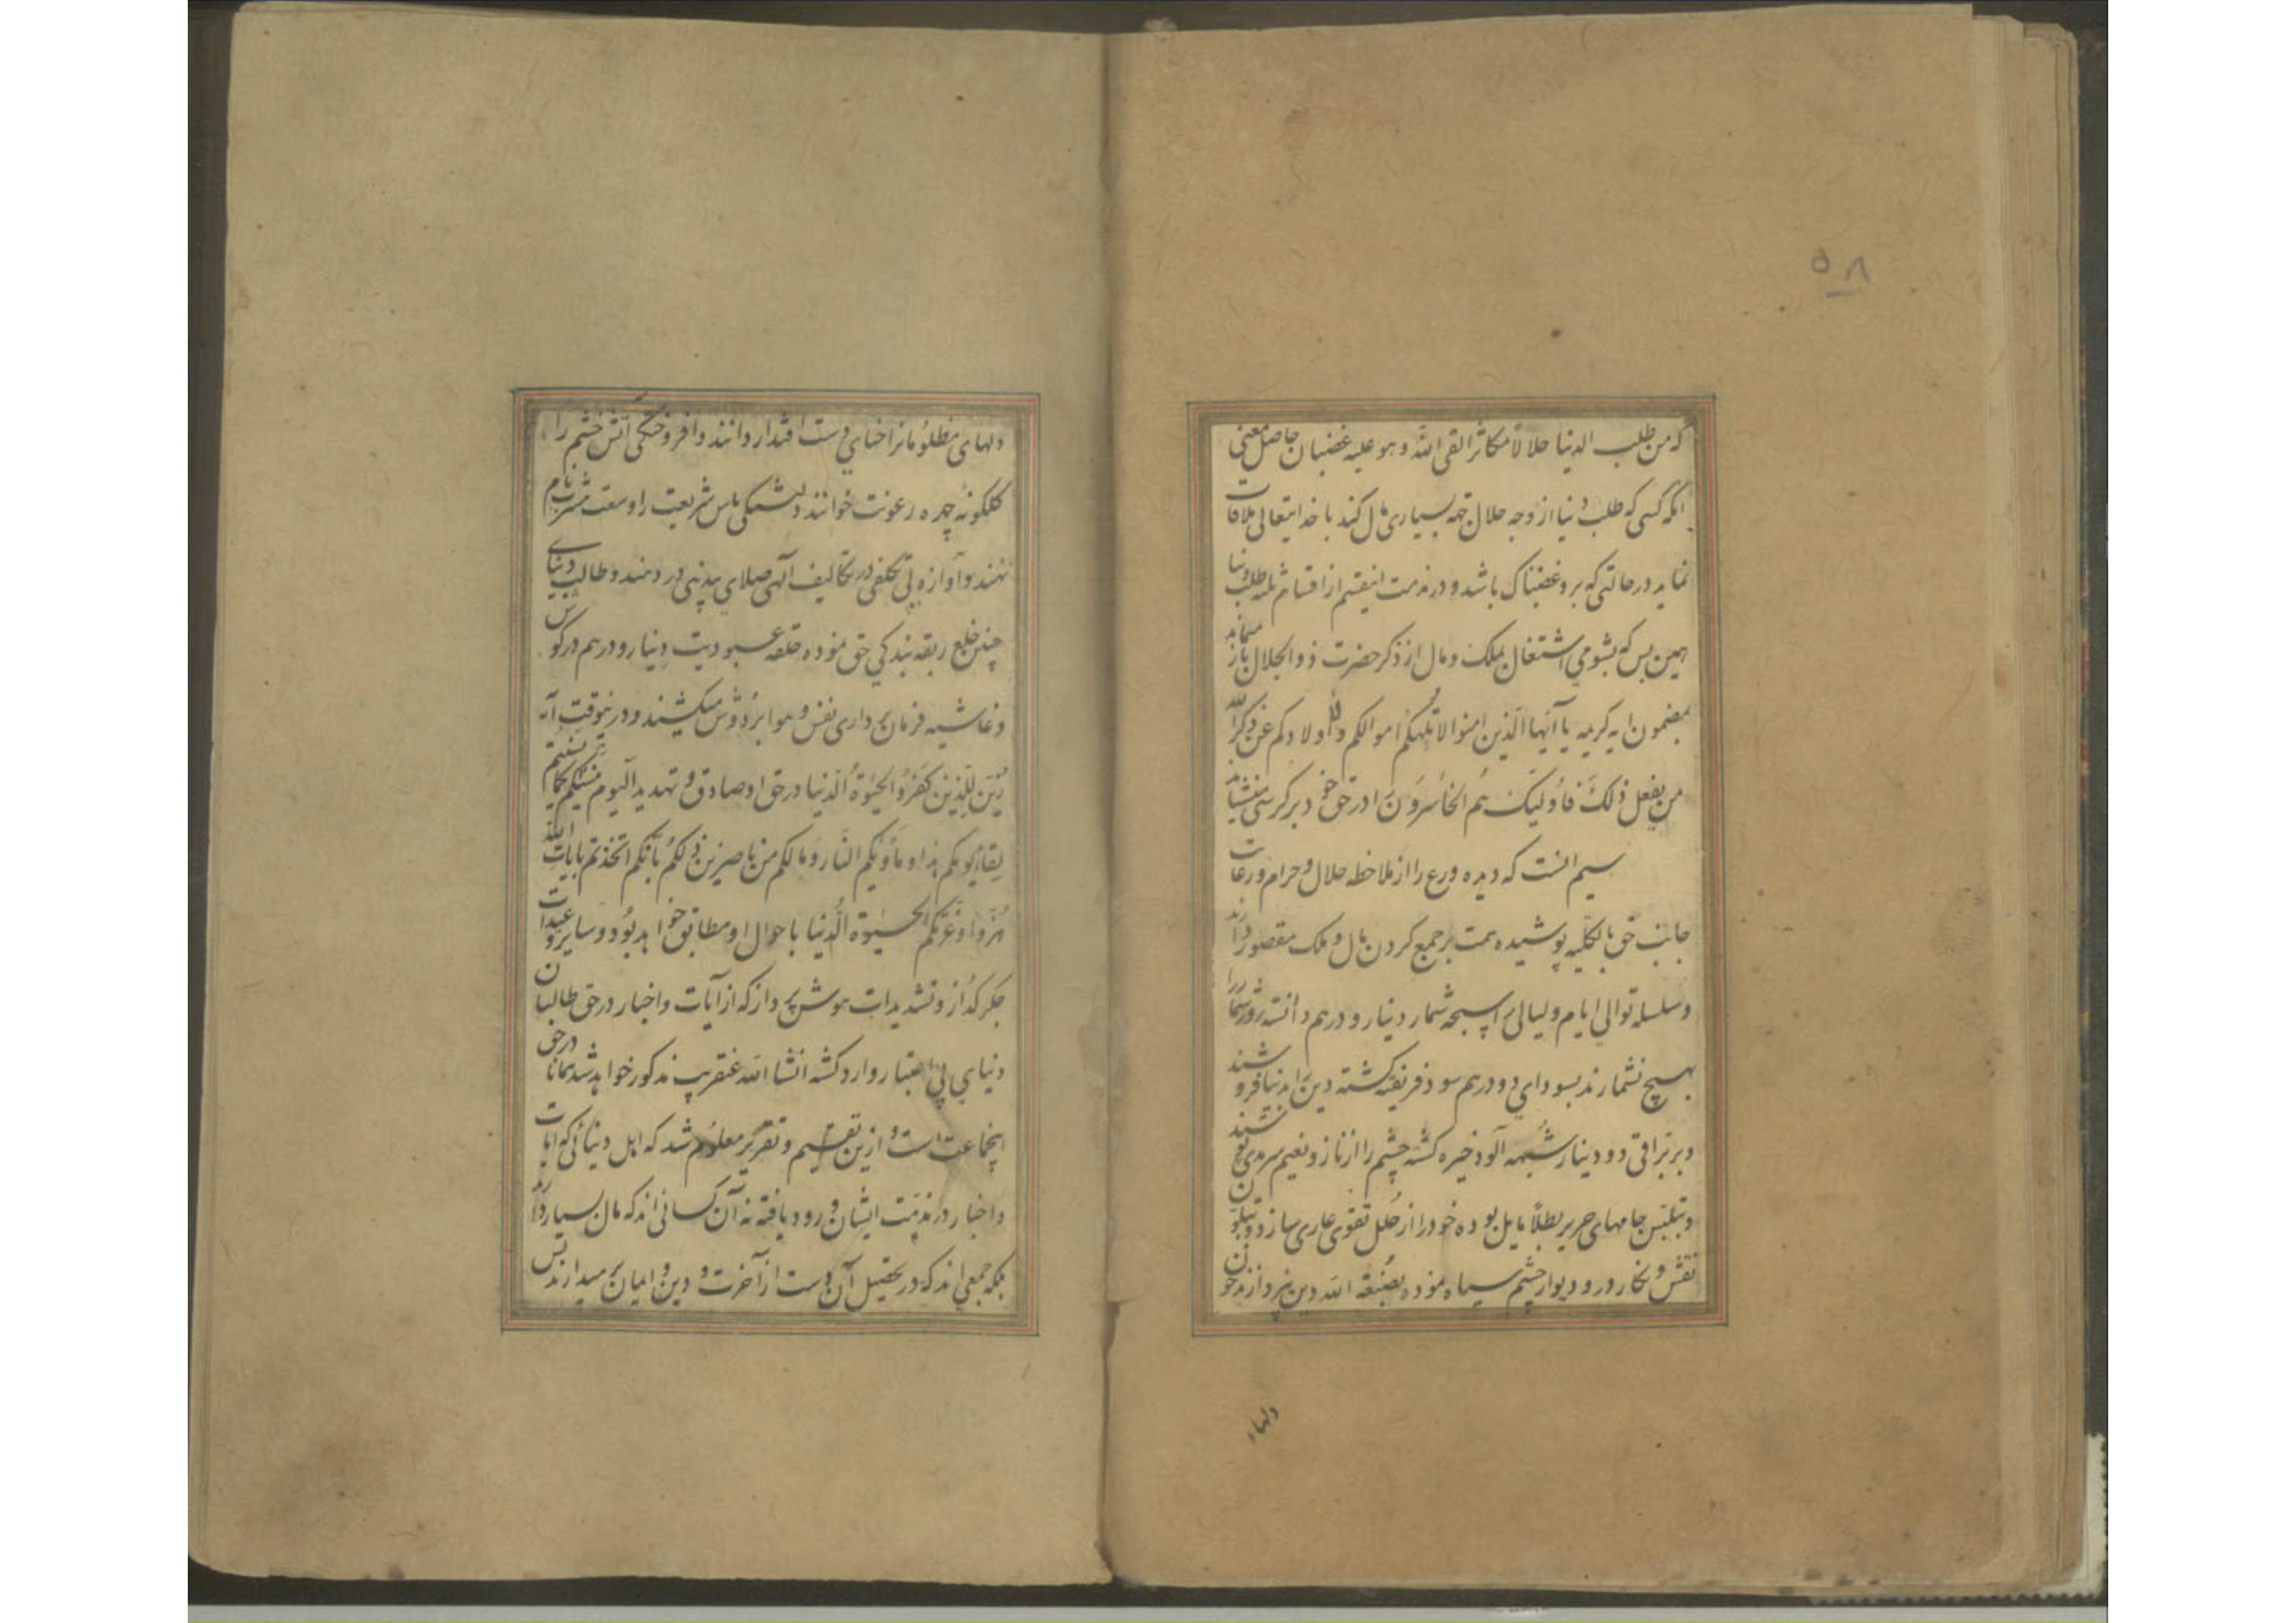 ۵۸
که من طلب الدنیا حلالاً مکاثرا لقی الله وهو علیه غضبان حاصل معنی
انکه کسی که طلب دنیا از وجه حلال جهة بسیاری مال کند با خدایتعالی ملاقات
نماید درحالتی که برو غضبناک باشد و در مذمت اینقسم از اقسام ثلثه طلب دنیا
همین بس که بشومی اشتغال بملک ومال از ذکر حضرت ذوالجلال باز میماند
بمضمون ایه کریمه یا آیَها الَّذین امنوا لا تُلهِکُم اموالکم ولا اولادکم عَن ذِکرِ الله
من یفعل ذلِکَ فاُولیکَ هُم الخاسُروُن را در حق خود بر کرسی مینشاند
سیم انست که دیده ورع را از ملاحظه حلال و حرام و رعایت
جانب حق بالکلیه پوشیده همت بر جمع کردن مال و ملک مقصور دارند
وسلسله توالی ایام ولیالی را سبحه شمار دینار و درهم دانسته روز شمار را
بهیچ نشمارند بسودای دو درهم سود فریفته کشته دین را بدنیا فروشند
وبر براقی دو دینار شُبهه آلود خیره کشته چشم را از ناز و نعیم سرمدی پوشند
وبتلبّس جامهای حریر بطلاً مایل بوده خود را از حُلل تقوی عاری سازند و بتلوّن
نقش و نکار در و دیوار چشم سیاه نموده بصُبغة الله دین نپردازند خون
دلهاء
دلهای مظلوُمانرا حنای دست اقتدار دانند وافروختکی آتش خشم را
کلکونهٔ چهره رعونت خوانند ولشتکی پاس شریعت را وسعت مشرب نام
نهند و آوازه بی تکلفی در تکالیف آلهی صلای بیدینی در دهند و طالب دنیای
چنین خلع ربقه بندکی حق نموده حلقه عبودیت دینار و درهم در کوش
و غاشیه فرمان برداری نفس و هوا بر دوش میکشند و درینوقت آیه
زُیّنَ لِلّذین کَفَروُا الحَیوٰةُ الّدنیا در حق او صادق و تهدید الَیوم ننسیکم کما نسیتم
لِقاءَ یُومکم هذا و مأویکم النّار وما لکم من ناصرین ذلکُم بأنّکم اتّخذتم بایات الله
هُزُوا وَغَرَّتکم الحیوٰة الُّدنیا باحوال او مطابق خواهد بُود و سایر وعیدات
جکر کداز و تشدیدات هوش پرداز که از آیات و اخبار در حق طالبان
دنیای بی اعتبار وارد کشته انشا الله عنقریب مذکور خواهد شد همانا در حق
اینجماعت است و ازین تقسیم و تقریر معلوُم شد که اهل دنیائی که ایات
و اخبار در مذمّت ایشان ورود یافته نه آن کسانی اند که مال بسیار دارند
بلکه جمعی اند که در تحصیل آن دست از آخرت و دین و ایمان بر میدارند پس